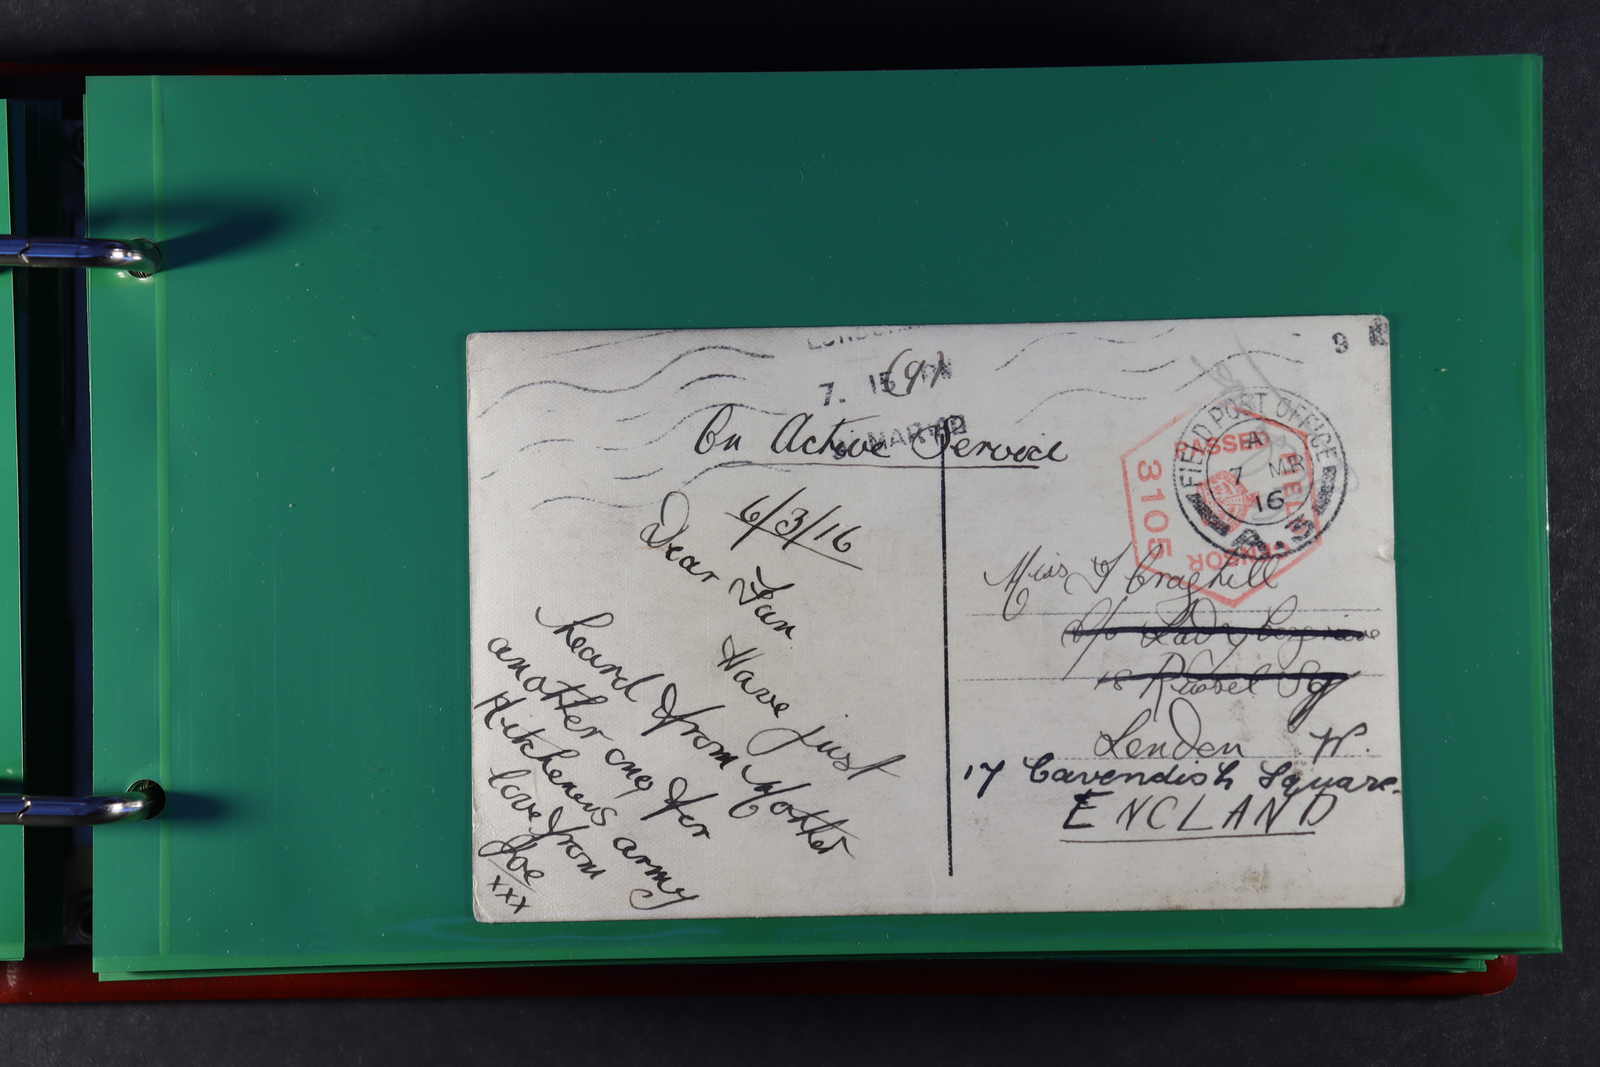 7. 15 PM
MAR 16
(97)
On Active Service
6/3/16
Dear Fan
Have just
heard from Mother
another one for
Kitcheners army
love from
Joe
xxx
9
FIELD POST OFFICE
A
7 MR
16
PASSED FIELD CENSOR
3105
Miss F Craghill
c/o Lady
18 Russel Sq
London W.
17 Cavendish Square.
ENGLAND